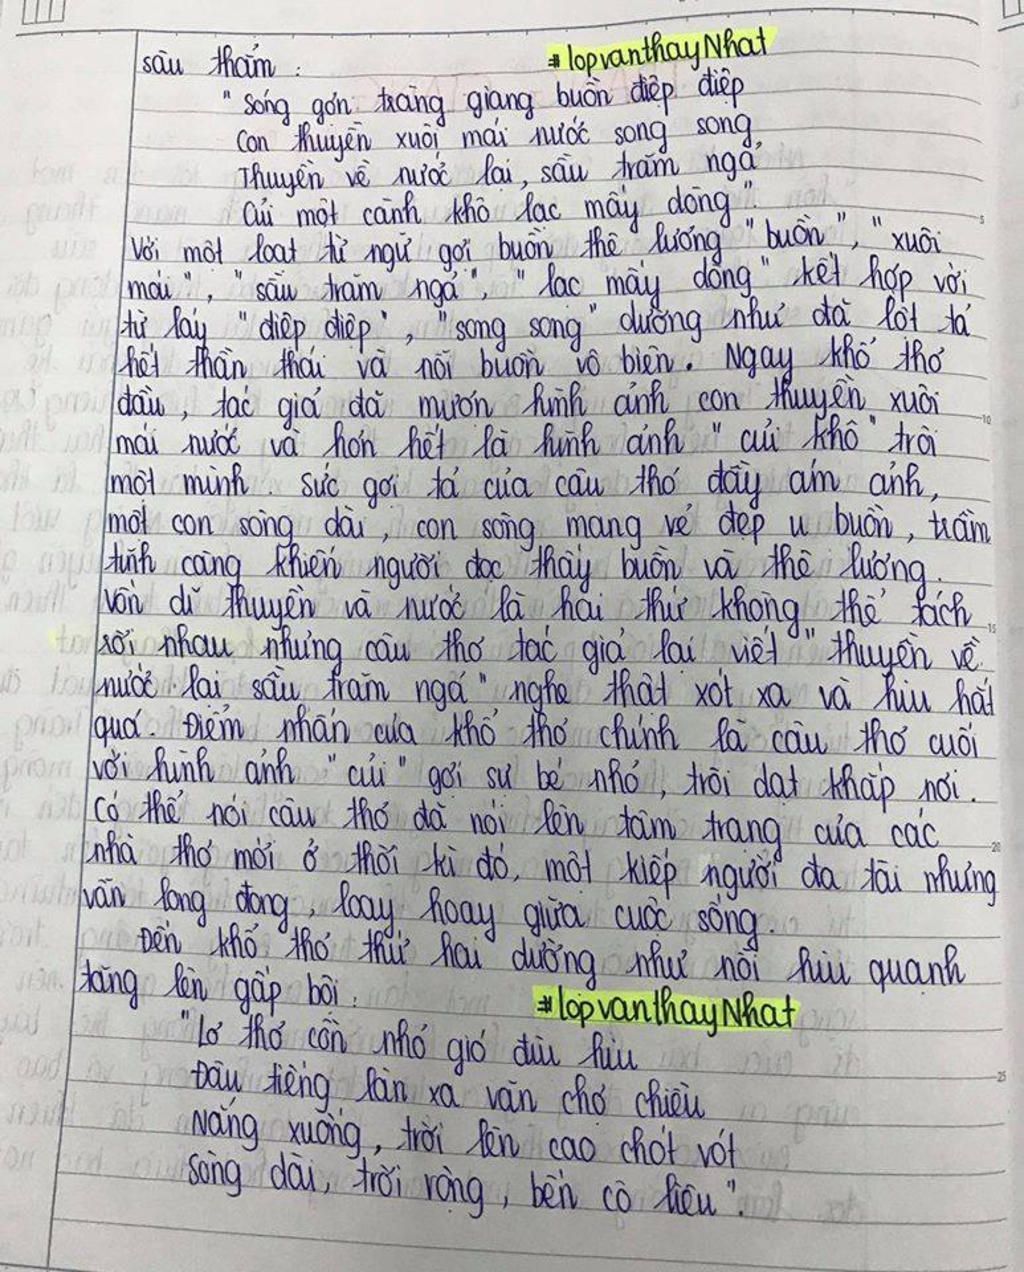 sầu thảm: #lopvanthayNhat
"Sóng gợn tràng giang buồn điệp điệp
Con thuyền xuôi mái nước song song
Thuyền về nước lại, sầu trăm ngả
Củi một cành khô lạc mấy dòng"
Với một loạt từ ngữ gợi buồn thê lương "buồn", "xuôi
mái", "sầu trăm ngả", "lạc mấy dòng" kết hợp với
từ láy "điệp điệp", "song song" dường như đã lột tả
hết thần thái và nỗi buồn vô biên. Ngay khổ thơ
đầu, tác giả đã mượn hình ảnh con thuyền xuôi
mái nước và hơn hết là hình ảnh "củi khô" trôi
một mình. Sức gợi tả của câu thơ đầy ám ảnh,
một con sông dài, con sông mang vẻ đẹp u buồn, trầm
tĩnh càng khiến người đọc thấy buồn và thê lương.
Vốn dĩ thuyền và nước là hai thứ không thể tách
rời nhau nhưng câu thơ tác giả lại viết "thuyền về
nước lại sầu trăm ngả" nghe thật xót xa và hiu hắt
quá. Điểm nhấn của khổ thơ chính là câu thơ cuối
với hình ảnh "củi" gợi sự bé nhỏ, trôi dạt khắp nơi.
Có thể nói câu thơ đã nói lên tâm trạng của các
nhà thơ mới ở thời kì đó, một kiếp người đa tài nhưng
vẫn long đong, loay hoay giữa cuộc sống.
Đến khổ thơ thứ hai dường như nỗi hiu quạnh
tăng lên gấp bội: #lopvanthayNhat
"Lơ thơ cồn nhỏ gió đìu hiu
Đâu tiếng làng xa vãn chợ chiều
Nắng xuống, trời lên cao chót vót
Sông dài, trời rộng, bến cô liêu".